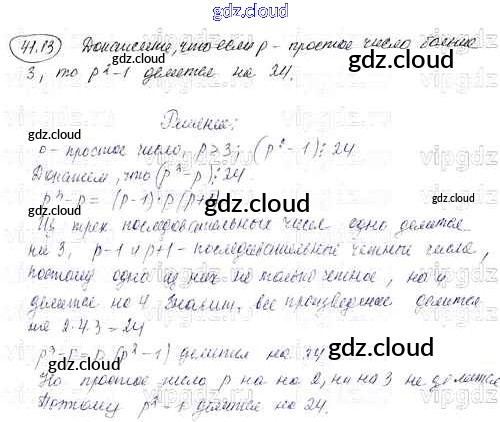 gdz.cloud
41.13) Докажите, что если p - простое число больше
3, то p²-1 делится на 24.
gdz.cloud
Решение:
p - простое число, p > 3; (p²-1)⋮24
gdz.cloud
Докажем, что (p³-p)⋮24.
p³-p = (p-1)·p(p+1)
gdz.cloud
Из трех последовательных чисел одно делится
на 3, p-1 и p+1 - последовательные четные числа,
поэтому одно из них не только четное, но и
делится на 4. Значит, все произведение делится
на 2·4·3=24
gdz.cloud
p³-p = p(p²-1) делится на 24
gdz.cloud
Но простое число p ни на 2, ни на 3 не делится
Поэтому p²-1 делится на 24.
gdz.cloud